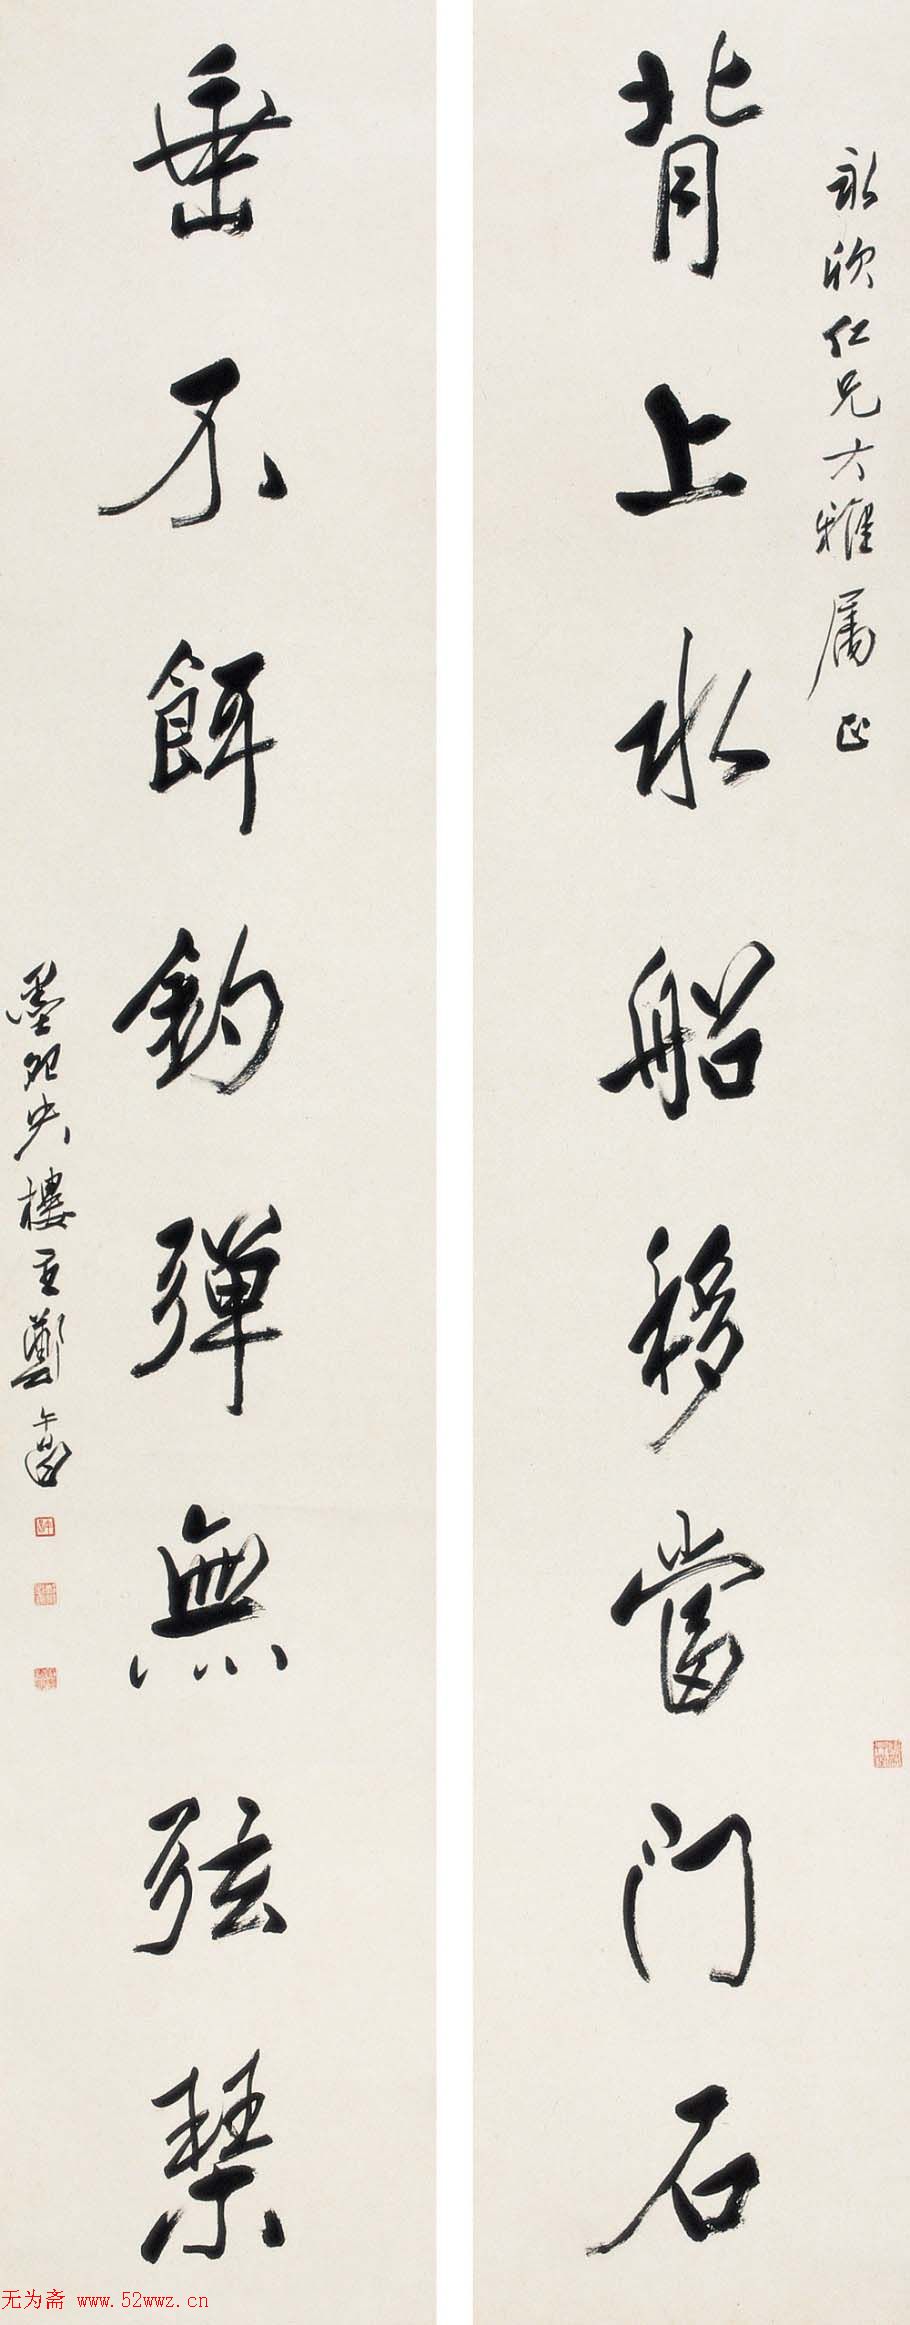 永欣仁兄大雅属正
背上水船移當門石
垂不餌鈎彈無弦琴
墨巢夬樓主鄭午昌
无为斋 www.52wwz.cn